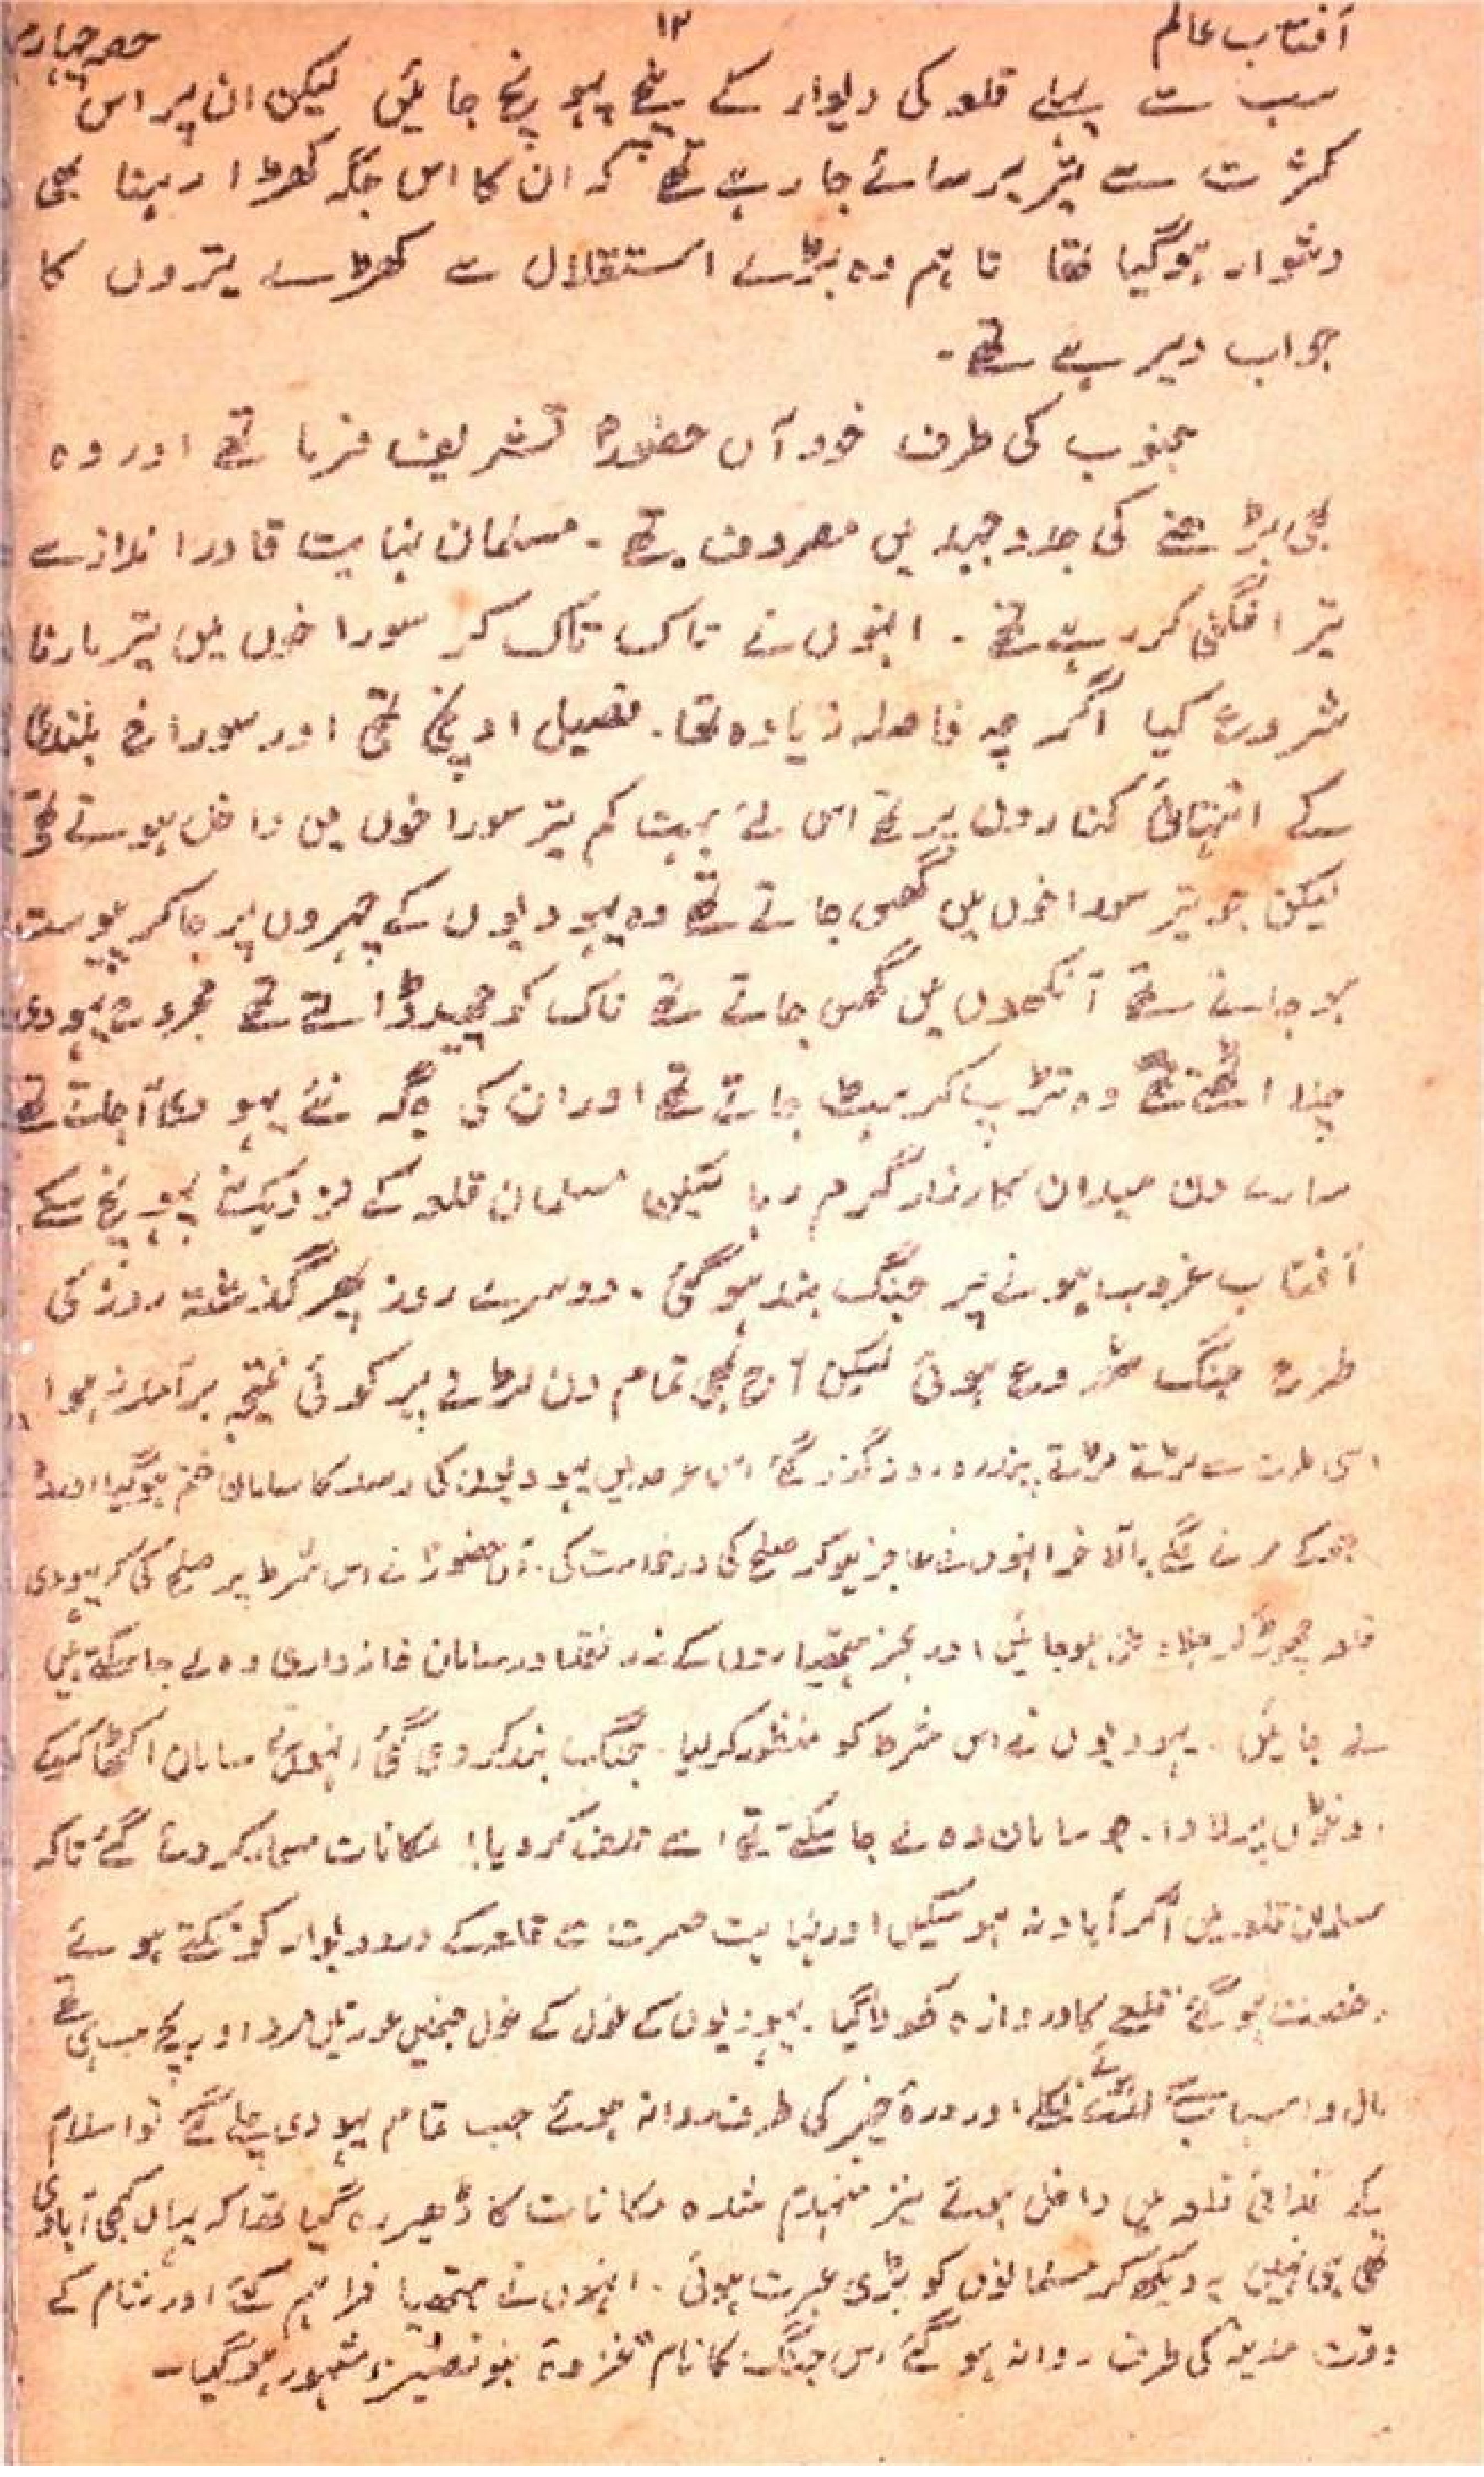 آفتاب عالم ۱۳ حصہ چہارم
سب سے پہلے قلعہ کی دیوار کے نیچے پہونچ جائیں لیکن ان پر اس
کثرت سے تیر برسائے جا رہے تھے کہ ان کا اس جگہ کھڑا رہنا بھی
دشوار ہوگیا تھا تاہم وہ بڑے استقلال سے کھڑے تیروں کا
جواب دیر ہے تھے۔
جنوب کی طرف خود آں حضورؐ تشریف فرما تھے اور وہ
بھی بڑھنے کی جدوجہد میں مصروف تھے۔ مسلمان نہایت قادر اندازسے
تیر افگنی کر رہے تھے۔ انہوں نے تاک تاک کر سوراخوں میں تیر مارنا
شروع کیا اگرچہ فاصلہ زیادہ تھا۔ فصیل اونچی تھی اور سوراخ بلندی
کے انتہائی کناروں پر تھے اس لئے بہت کم تیر سوراخوں میں داخل ہوتے تھے
لیکن جو تیر سوراخوں میں گھس جاتے تھے وہ یہودیوں کے چہروں پر جاکر پیوست
ہو جاتے تھے آنکھوں میں گھس جاتے تھے ناک کو چھیدڈالتے تھے مجروح یہودی
چلا اٹھتے تھے وہ تڑپ کر ہٹ جاتے تھے اور ان کی جگہ نئے یہودی آجاتے تھے
سارے دن میدان کارزار گرم رہا لیکن مسلمان قلعہ کے نزدیک نہ پہونچ سکے
آفتاب غروب ہونے پر جنگ بند ہوگئی۔ دوسرے روز پھر گذشتہ روز کی
طرح جنگ شروع ہوئی لیکن آج بھی تمام دن لڑنے پر کوئی نتیجہ برآمد نہ ہوا
اسی طرح سے لڑتے لڑتے پندرہ روز گزر گئے اس عرصہ میں یہودیوں کی رسد کا سامان ختم ہوگیا اور وہ
بھوکے مرنے لگے بالآخر انہوں نے عاجز ہوکر صلح کی درخواست کی۔ آں حضورؐ نے اس شرط پر صلح کی کہ یہودی
قلعہ چھوڑ کر جلا وطن ہو جائیں اور بجز ہتھیاروں کے زر نقد اور سامان خانہ داری وہ لے جاسکتے ہیں
لے جائیں۔ یہودیوں نے اس شرط کو منظور کر لیا۔ جنگ بند کر دی گئی انہوں نے سامان اکٹھا کرکے
اونٹوں پر لادا۔ جو سامان وہ نہ لے جا سکتے تھے اسے تلف کر دیا! مکانات مسمار کر دئے گئے تاکہ
مسلمان قلعہ میں آکر آباد نہ ہو سکیں اور نہایت حسرت سے قلعہ کے درو دیوار کو تکتے ہوئے
رخصت ہو گئے قلعے کا دروازہ کھولا گیا۔ یہودیوں کے غول کے غول جنمیں عورتیں مرد اور بچے سب ہی تھے
مال و اسباب لئے ہوئے نکلے اور درۂ خیبر کی طرف روانہ ہوئے جب تمام یہودی چلے گئے تو اسلام
کے فدائی قلعہ میں داخل ہوئے نیز منہدم شدہ مکانات کا ڈھیر رہ گیا تھا کہ یہاں کبھی آبادی
تھی بھی یا نہیں یہ دیکھ کر مسلمانوں کو بڑی عبرت ہوئی۔ انہوں نے ہتھیار فراہم کئے اور شام کے
وقت مدینہ کی طرف روانہ ہو گئے اس جنگ کا نام "غزوۂ بنو نضیر" مشہور ہو گیا۔